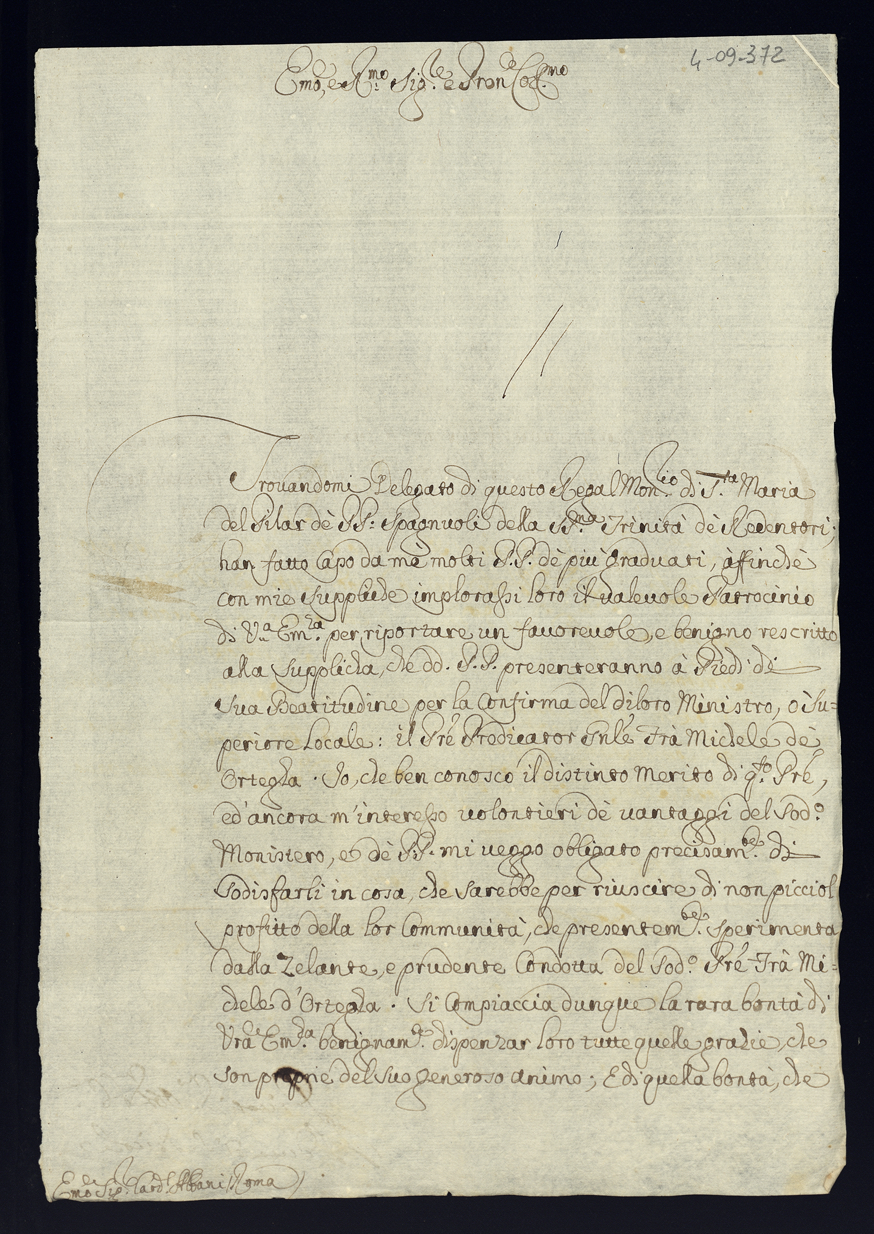 4-09-372
Emo, e Rmo Sigre e Pron Colmo
Trovandomi Delegato di questo Regal Monrio di S.ta Maria
del Pilar dè PP: Spagnuoli della SS.ma Trinità dè Redentori;
han fatto Capo da mè molti P.P. dè più graduati, àffinchè
con mie suppliche implorassi loro il valevole Patrocinio
di V.a Em.za per riportare un favorevole, e benigno rescritto
alla supplicha, che dd. P.P. presenteranno à Piedi di
Sua Beatitudine per la Confirma del diloro Ministro, o Su=
periore Locale: il Pre Predicator Gnle Frà Michele dè
Ortegha. Io, che ben conosco il distinto merito di q.to Pre,
ed'ancora m'interesso volontieri dè vantaggi del Sod.o
Monistero, e dè PP. mi veggo obligato precisam.te di
sodisfarli in cosa, che sarebbe per riuscire di non picciol
profitto della lor Communità, che presentem.te sperimenta
dalla Zelante, e prudente Condotta del Sod.o Pre Frà Mi=
chele d'Ortegha. Si Compiaccia dunque la rara bontà di
Vra Em.za benignam.te dispenzar loro tutte quelle grazie, che
son proprie del suo generoso animo; E di quella bontà, che
Emo Sig.r Card.l Albani Roma